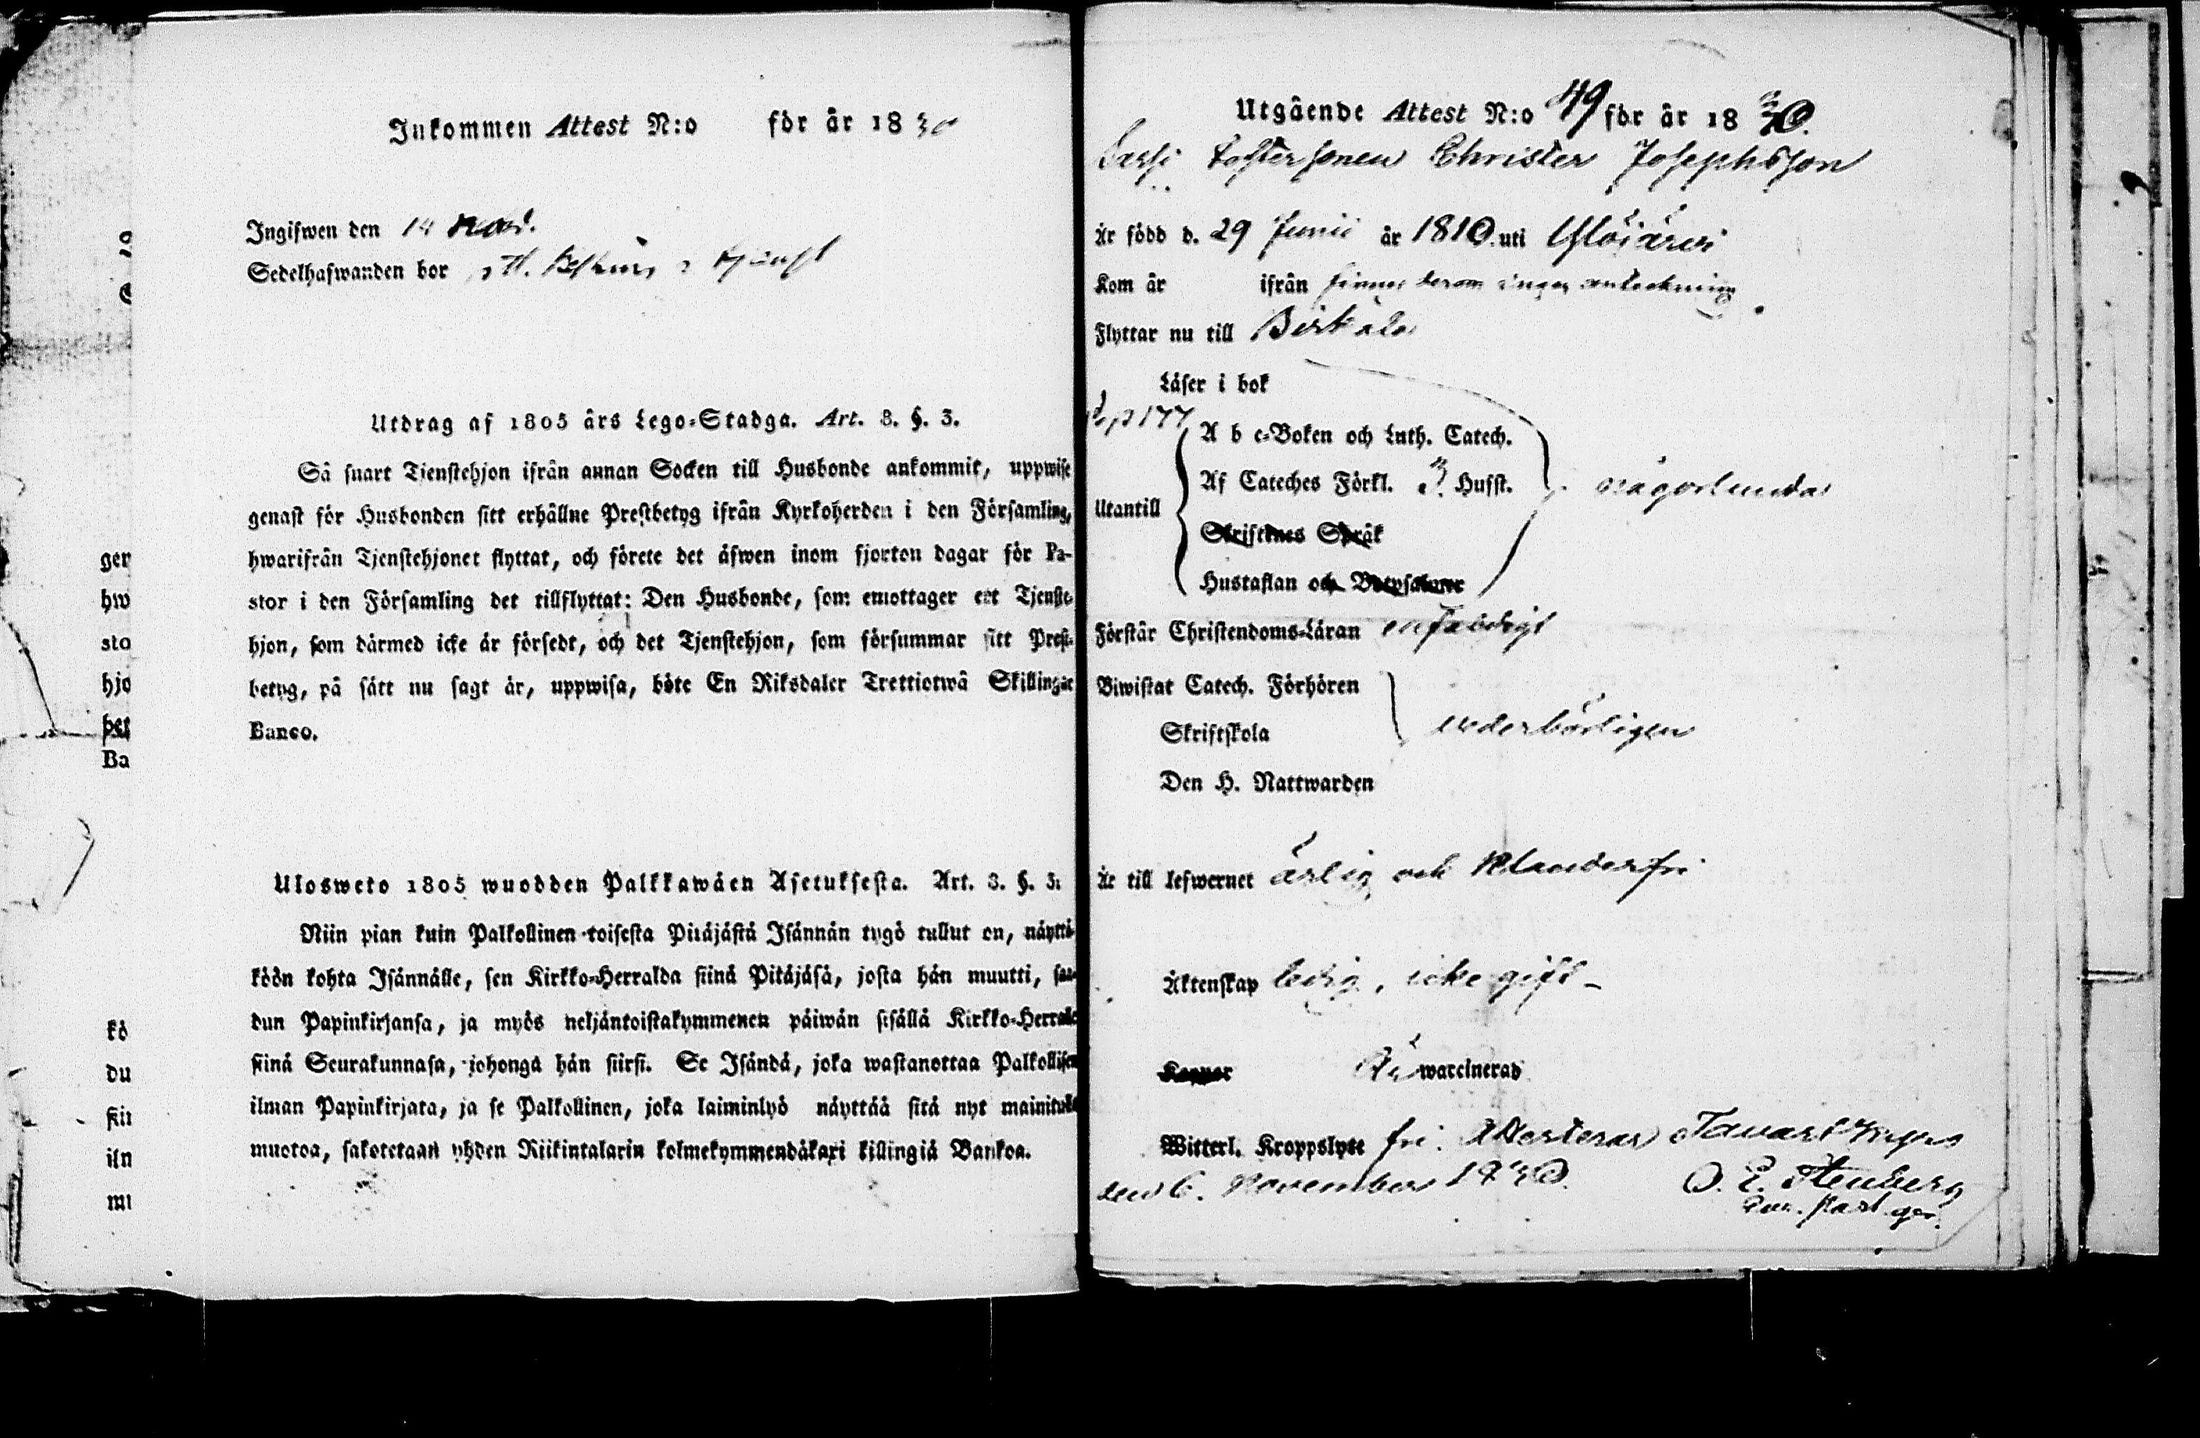 Inkommen Attest N:o för år 1830
Ingifwen den 14 Nov.
Sedelhafwanden bor
Utdrag af 1805 års Lego-Stadga. Art. 3. §. 3.
Så snart Tjenstehjon ifrån annan Socken till Husbonde ankommit, uppwise
genast för Husbonden sitt erhållne Prestbetyg ifrån Kyrkoherden i den Församling,
hwarifrån Tjenstehjonet flyttat, och förete det äfwen inom fjorton dagar för Pa-
stor i den Församling det tillflyttat: Den Husbonde, som emottager ett Tjenste-
hjon, som därmed icke är försedt, och det Tjenstehjon, som försummar sitt Prest-
betyg, på sätt nu sagt är, uppwisa, böte En Riksdaler Trettiotwå Skillingar
Banco.
Ulosweto 1805 wuodden Palkkawäen Asetuksesta. Art. 3. §. 3.
Niin pian kuin Palkollinen toisesta Pitäjästä Isännän tygö tullut on, näyttä-
köön kohta Isännälle, sen Kirkko-Herralda siinä Pitäjäsä, josta hän muutti, saa-
dun Papinkirjansa, ja myös neljäntoistakymmenen päiwän sisällä Kirkko-Herralle
siinä Seurakunnasa, johonga hän siirsi. Se Isändä, joka wastanottaa Palkollisen
ilman Papinkirjata, ja se Palkollinen, joka laiminlyö näyttää sitä nyt mainitulla
muotoa, sakotetaan yhden Riikintalarin kolmekymmendäkaxi killingiä Bankoa.
ger
hw
sto
hjo
bet
Ba
kö
du
sii
iln
mu
Utgående Attest N:o 49 för år 1830.
Sarsi Fostersonen Christer Josephsson
Är född d. 29 Junii år 1810. uti Ylöjärvi
Kom år ifrån finnes derom ingen anteckning
Flyttar nu till Birkala
Läser i bok
p 177
Utantill
A b c-Boken och Luth. Catech.
Af Cateches Förkl. 3 Hufst. någorlunda
Skriftenes Språk
Hustaflan och Botpsalmer
Förstår Christendoms-Läran enfaldigt
Biwistat Catech. Förhören
Skriftskola wederbörligen
Den H. Nattwarden
Är till lefwernet ärlig och klanderfri
Äktenskap ledig, icke gift -
Koppor Är waccinerad
Witterl. Kroppslyte fri. Attesterar Tavastkyro
den 6. November 1830. O. E. Stenberg